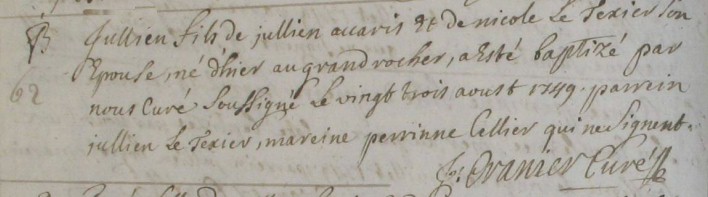 B Jullien fils de jullien avaris Et de nicole Le Texier son
Epouse, né d'hier au grand rocher, a Esté baptizé par
62 nous Curé Soussigné Le vingt trois aoust 1749. parrein
jullien Le Texier, mareine perrinne Cellier qui ne signent.
Granier Curé